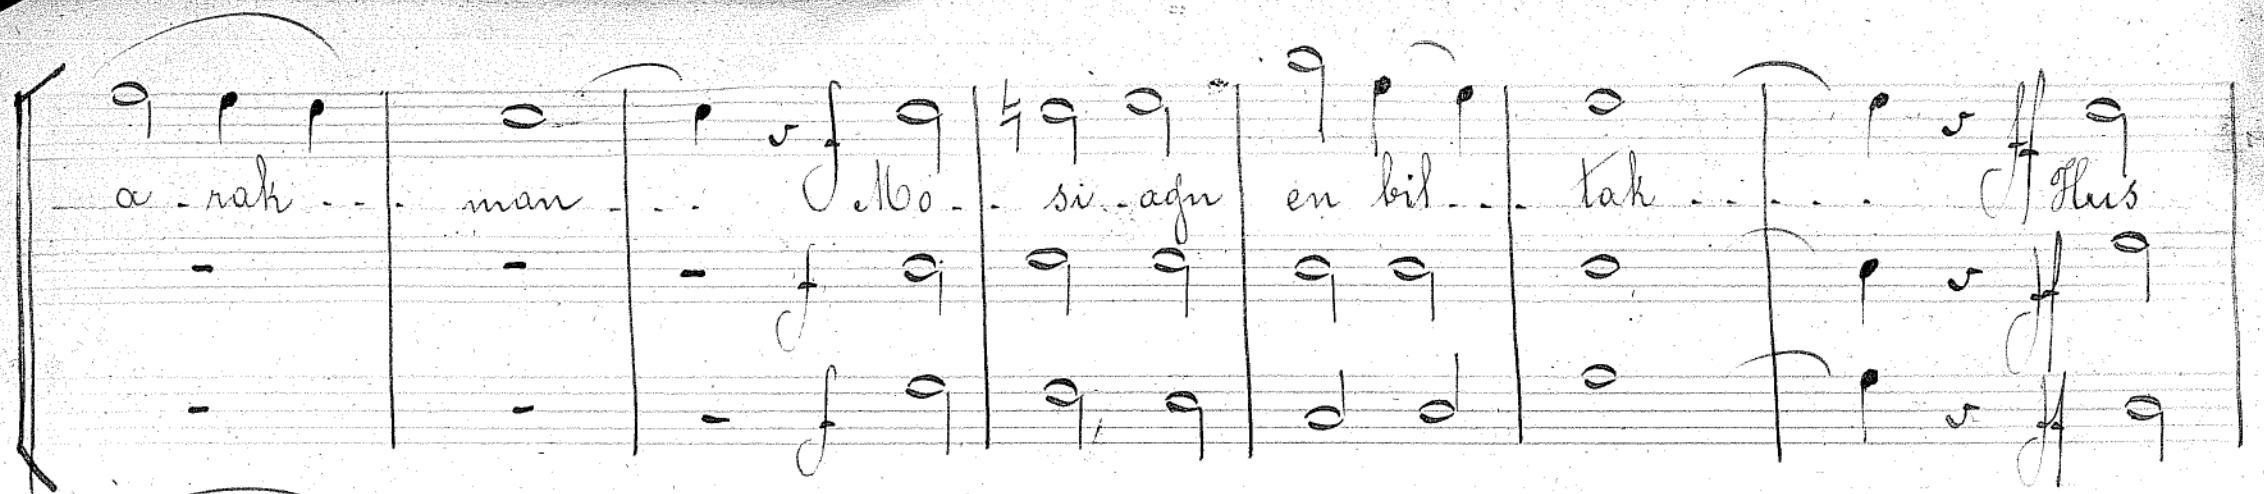 a - rak - - - man - - - f Mo - - si - agn en bil - - - tak - - - - - ff Hus
f ff
f ff